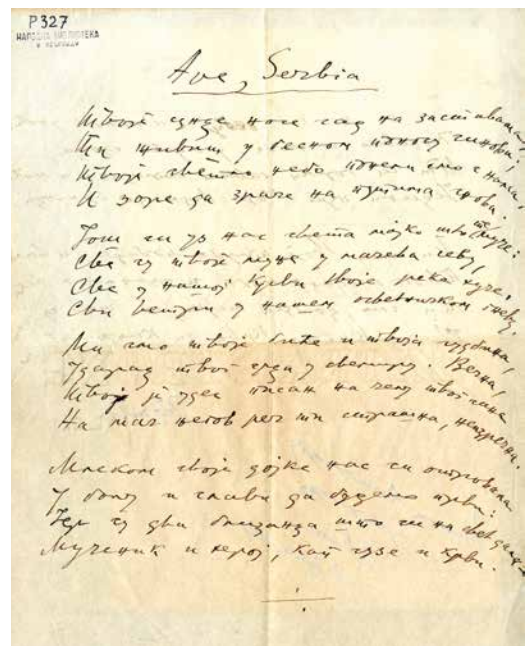 Р327
НАРОДНА БИБЛИОТЕКА
У БЕОГРАДУ
Ave, Serbia
Твоје сунце носе сад на заставама,
Ти живиш у бесном поносу синова;
Твоје светло небо понели смо с нама,
И зоре да зраче на путима снова.
Још си уз нас света мајко што те муче:
Све су твоје муње у мачева севу,
Све у нашој крви твоје реке хуче,
Сви ветри у нашем осветничком гневу.
Ми смо твоје биће и твоја судбина,
Ударац твог срца у свемиру. Вечна,
Твој је удес писан на челу твог сина
На мач његов реч ти страшна, неизречна.
Млеком своје дојке нас си отровала
У болу и слави да будемо први:
Јер су два близанца што си на свет дала –
Мученик и херој, кап сузе и крви.